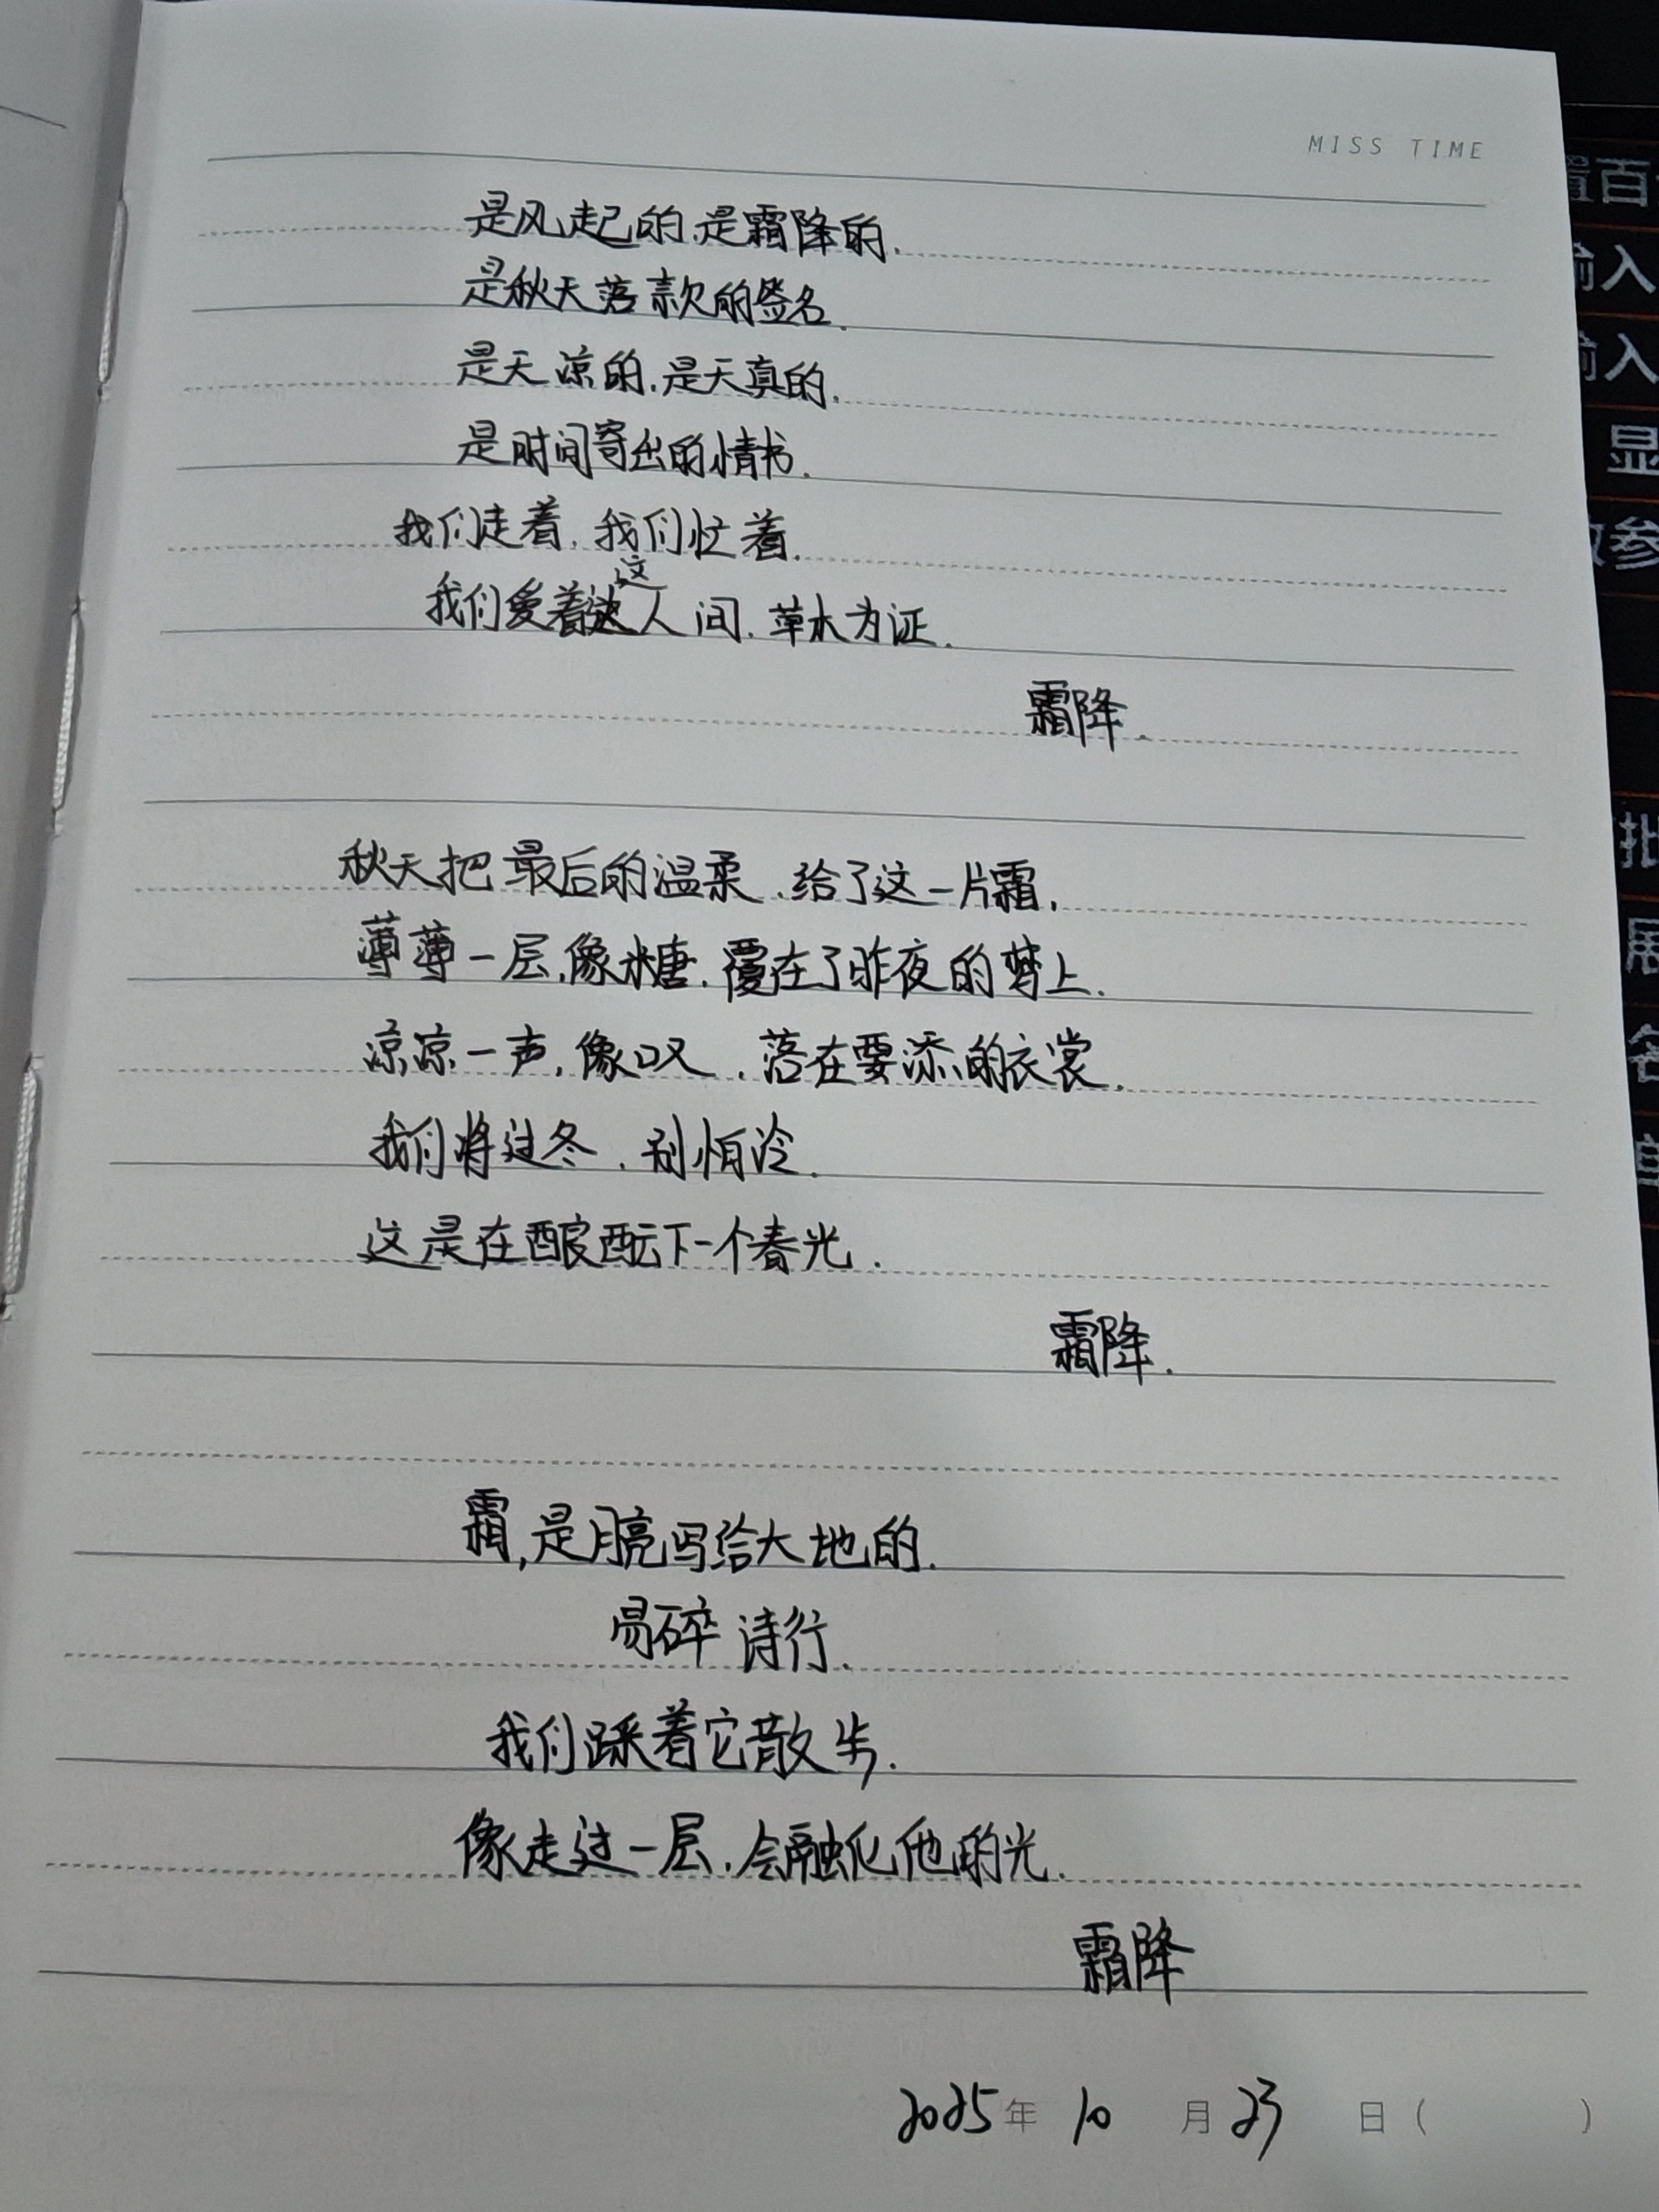 MISS TIME
是风起的.是霜降的.
是秋天落款的签名.
是天凉的.是天真的.
是时间寄出的情书.
我们走着.我们忙着.
我们爱着这人间.草木为证.
霜降.
秋天把最后的温柔.给了这一片霜.
薄薄一层.像糖.覆在了昨夜的梦上.
凉凉一声.像叹.落在要添的衣裳.
我们将过冬.别怕冷.
这是在酿酝下一个春光.
霜降.
霜,是月亮写给大地的.
易碎诗行.
我们踩着它散步.
像走过一层.会融化他的光.
霜降
2025年 10 月 23 日 ( )
置百
输入
输入
显
参
批
展
名